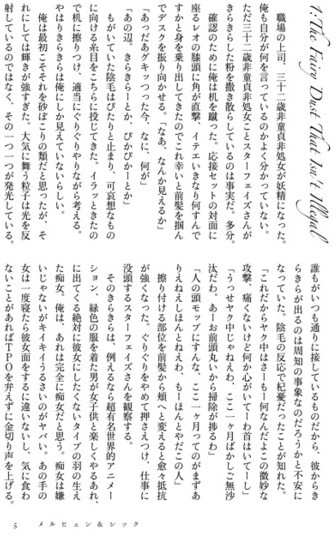 1:The Fairy Dust That Isn't Illegal
職場の上司、三十二歳非童貞非処女が妖精になった。
俺も自分が何を言っているのかよく分かっていない。
ただ三十二歳非童貞非処女ことスターフェイズさんが
きらきらした粉を撒き散らしているのは事実だ。多分。
確認のために俺は机を蹴った。応接セットの対面に
座るレオの膝頭に角が直撃、イテェいきなり何すんで
すかと身を乗り出してきたのでこれ幸いと前髪を掴ん
でデスクを振り向かせる。「なあ、なんか見えるか」
「あっだアグキッつった今、なに、何が」
「あの辺。きらきらーとか、ぴかぴかーとか」
もがいていた陰毛はぴたりと止まり、可哀想なもの
に向ける糸目をこちらに投じてきた。イラッときたの
で机に擦りつけ、適当にぐりぐりやりながら考える。
やはりきらきらは俺にしか見えていないらしい。
俺は最初こそそれを砂ぼこりの類だと思ったが、そ
れにしては輝きが強すぎた。大気に舞う粒子は光を反
射しているのではなく、その一つ一つが発光している。
誰もがいつも通りに接しているものだから、彼からき
らきらが出るのは周知の事象なのだろうかと不安に
なっていた。陰毛の反応で杞憂だったことが知れた。
「これだからヤク中はさーもー何なんだよこの微妙な
攻撃、痛くないけど何か心がいてーわ首はいてーし」
「うっせヤク中じゃねえわ、ここ一ヶ月ばかしご無沙
汰だわ。あーお前頭丸いから掃除が捗るわ」
「人の頭モップにすんな、ここ一ヶ月ってのがまずあ
りえねえしほんとねえわ、もーほんとやだこの人」
擦り付ける部位を前髪から頬へと変えると愈々抵抗
が強くなった。ぐりぐりをやめて押さえつけ、仕事に
没頭するスターフェイズさんを観察する。
そのきらきらは、例えるなら超有名世界的アニメー
ション、緑色の服を着た男が女子供と楽しくやるあれ、
に出てくる絶対に彼女にしたくないタイプの羽の生え
た痴女。俺は、あれは完全に痴女だと思う。痴女は嫌
いじゃないがキイキイうるさいのがヤバい。あの手の
女は一度寝たら彼女面をするに違いないし、気に食わ
ないことがあればTPOを弁えずに金切り声を上げる。
5 メルヒェン＆シック